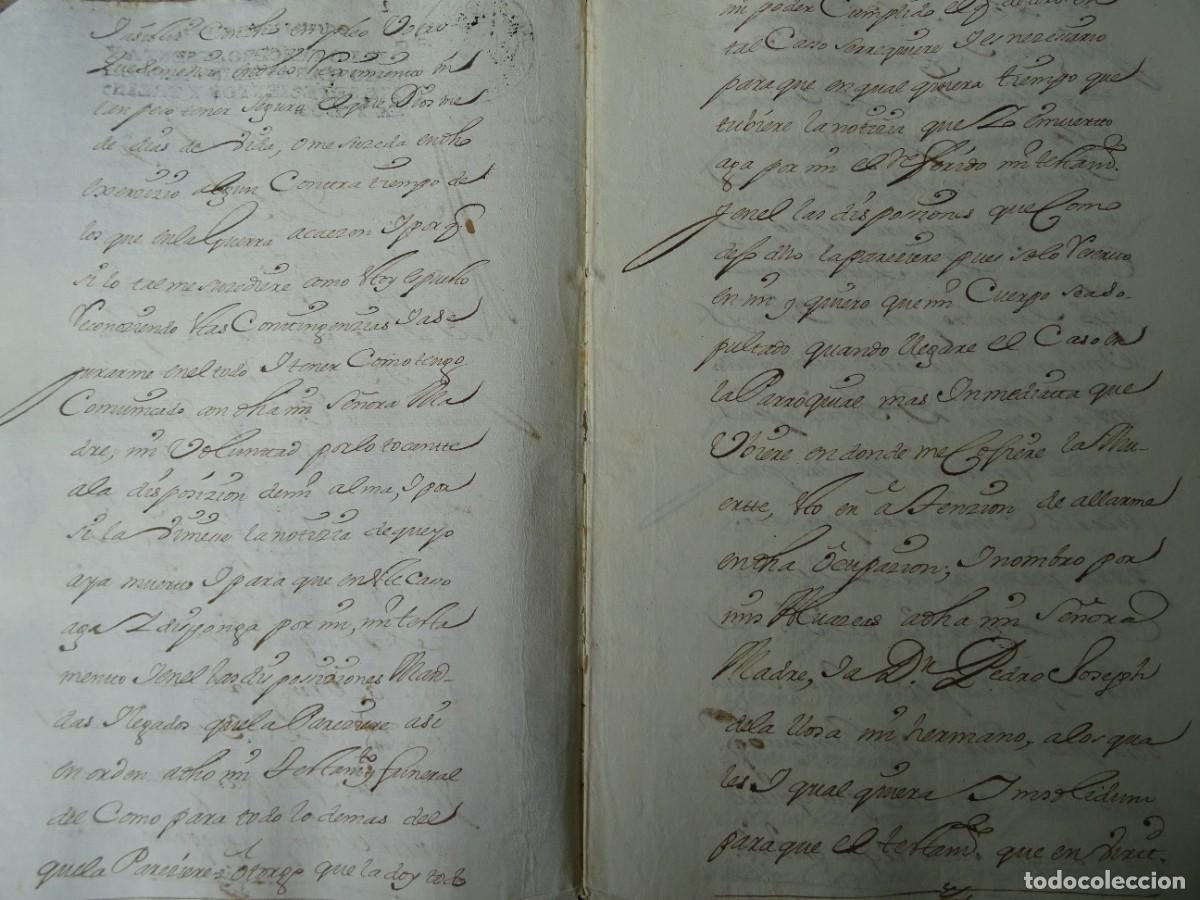 tan pero tener segura el que Dios me
de dias de Vida, o me suzeda en dho
exerzizio algun Contra tiempo de
los que en la Guerra acaezen I por q.
si lo tal me suzediere como
reconoziendo las Continxenzias I ase
gurarme en el todo I tener Como tengo
Comunicado con dha mi Señora Ma
dre, mi Voluntad por lo tocantte
a la disposizion de mi alma, I por
si la Viniere la notizia de que yo
aya muerto I para que en este caso
aga I disponga por mi, mi testa
mento I en el las disposiziones Man-
das I legados que la Pareziere asi
en orden a dho mi Testamto y funeral
del Como para todo lo demas del
que la Pareziere = otorgo que la doy todo
mi poder Cumplido el q. de dro en
tal Caso se requiere I es nezesario
para que en qual quiera tiempo que
tubiere la notizia que I e muerto
aga por mi el referido mi testamto
I en el las disposiziones que Como
dho la pareziere pues solo reservo
en mi y quiero que mi Cuerpo sea se-
pultado quando llegare el Caso en
la Parroquial mas Inmediata que
Ubiere en donde me Cojiere la Mu-
ertte, esto en atenzion de allarme
en dha ocupazion; I nombro por
mis Albazeas a dha mi Señora
Madre, I a Dn. Pedro Joseph
de la mi hermano, a los qua
les I qual quiera Insolidum
para que el testamto que en virtt.
todocoleccion